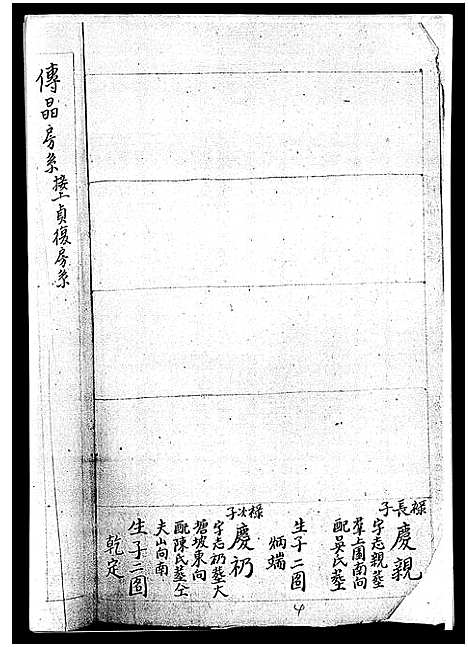 祿長子
慶親
字志親葬
羣上園南向
配吳氏葬
生子二圆
炳端
祿次子
慶礽
字志礽葬大
塘坡東向
配陳氏葬仝
夫山向南
生子二圆
乾定
傳晶房系接貞復房系